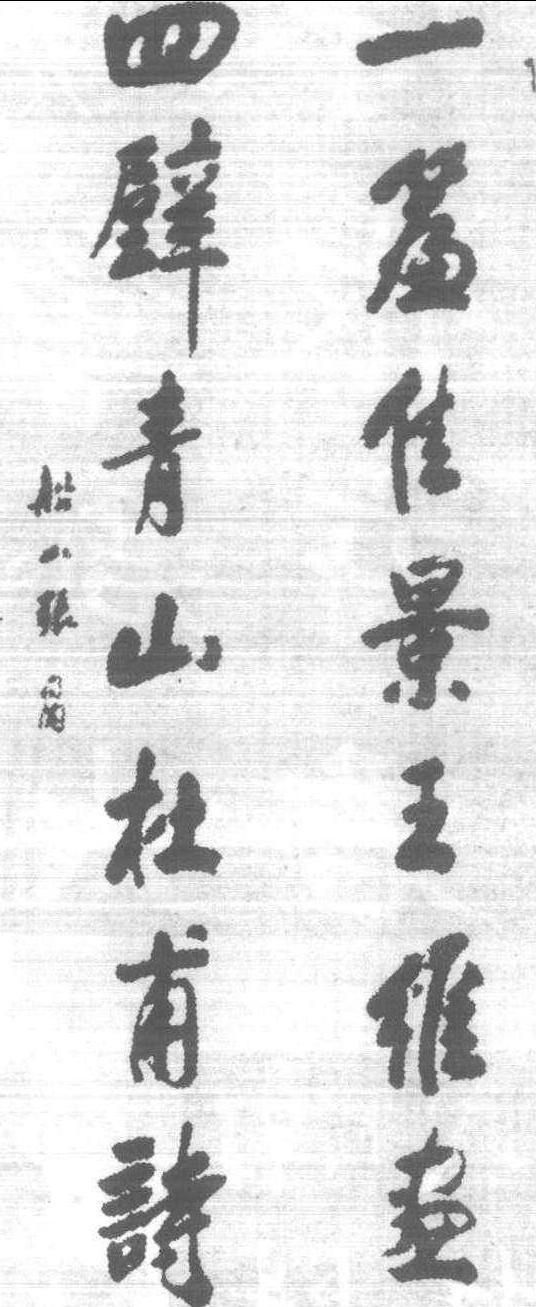 一簾佳景王維畫
四壁青山杜甫詩